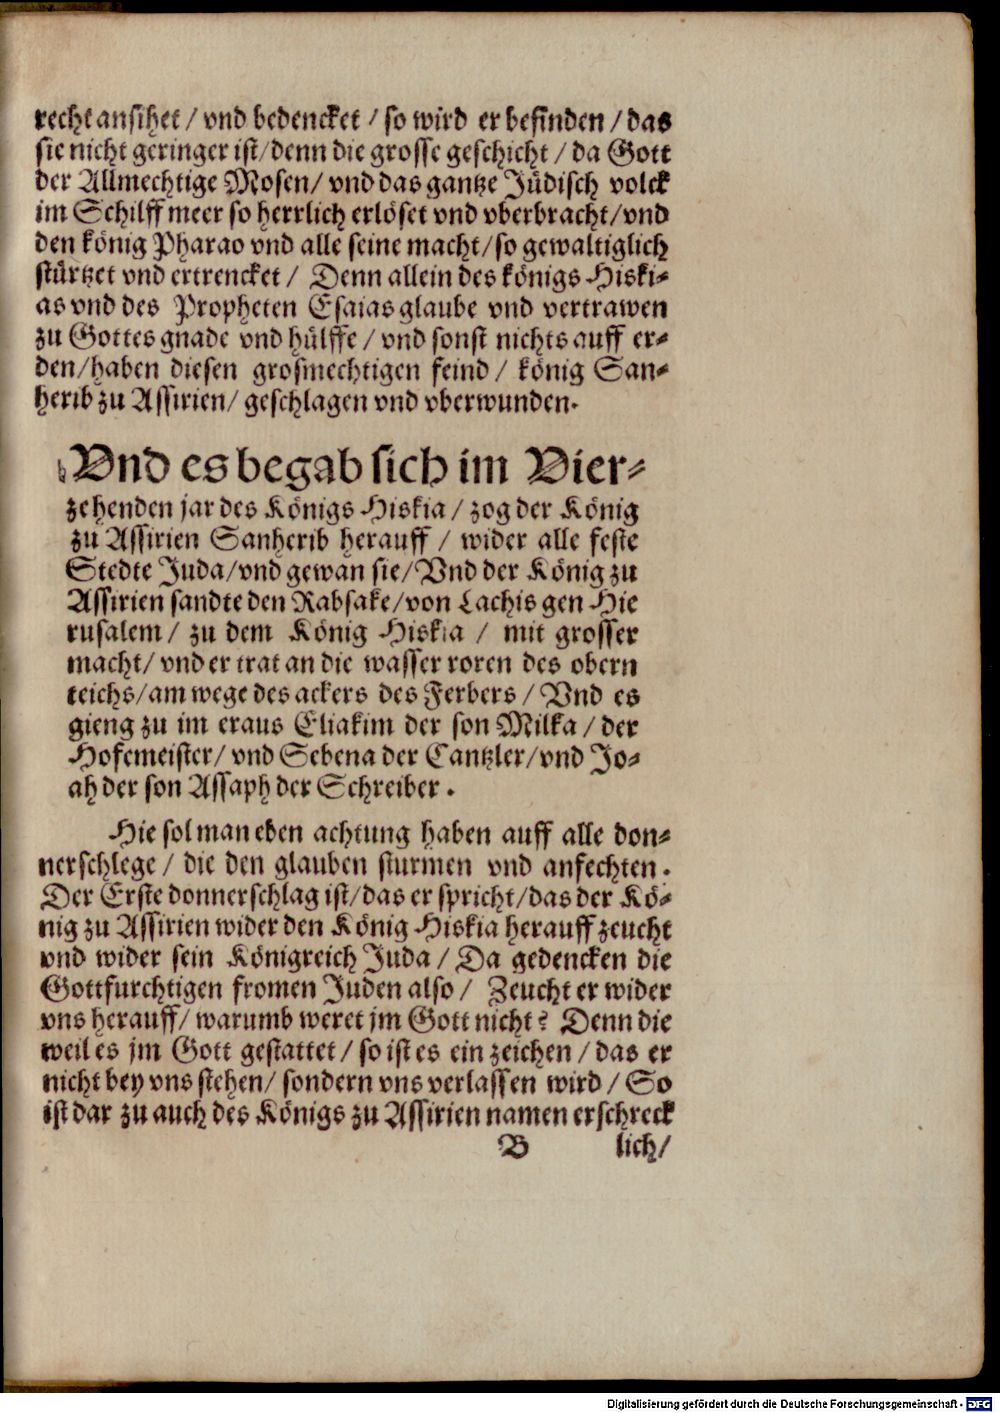 recht ansihet / vnd bedencket / so wird er befinden / das
sie nicht geringer ist / denn die grosse geschicht / da Gott
der Allmechtige Mosen / vnd das gantze Jüdisch volck
im Schilff meer so herrlich erlöset vnd vberbracht / vnd
den könig Pharao vnd alle seine macht / so gewaltiglich
stürtzet vnd ertrencket / Denn allein des königs Hiski-
as vnd des Propheten Esaias glaube vnd vertrawen
zu Gottes gnade vnd hülffe / vnd sonst nichts auff er-
den / haben diesen grosmechtigen feind / könig San-
herib zu Assirien / geschlagen vnd vberwunden.
Vnd es begab sich im Vier-
zehenden jar des Königs Hiskia / zog der König
zu Assirien Sanherib herauff / wider alle feste
Stedte Juda / vnd gewan sie / Vnd der König zu
Assirien sandte den Rabsake / von Lachis gen Hie
rusalem / zu dem König Hiskia / mit grosser
macht / vnd er trat an die wasser roren des obern
teichs / am wege des ackers des Ferbers / Vnd es
gieng zu im eraus Eliakim der son Milka / der
Hofemeister / vnd Sebena der Cantzler / vnd Jo-
ah der son Assaph der Schreiber .
Hie sol man eben achtung haben auff alle don-
nerschlege / die den glauben sturmen vnd anfechten .
Der Erste donnerschlag ist / das er spricht / das der Kö-
nig zu Assirien wider den König Hiskia herauff zeucht
vnd wider sein Königreich Juda / Da gedencken die
Gottfurchtigen fromen Juden also / Zeucht er wider
vns herauff / warumb weret jm Gott nicht ? Denn die
weil es jm Gott gestattet / so ist es ein zeichen / das er
nicht bey vns stehen / sondern vns verlassen wird / So
ist dar zu auch des Königs zu Assirien namen erschreck
B lich /
Digitalisierung gefördert durch die Deutsche Forschungsgemeinschaft - DFG